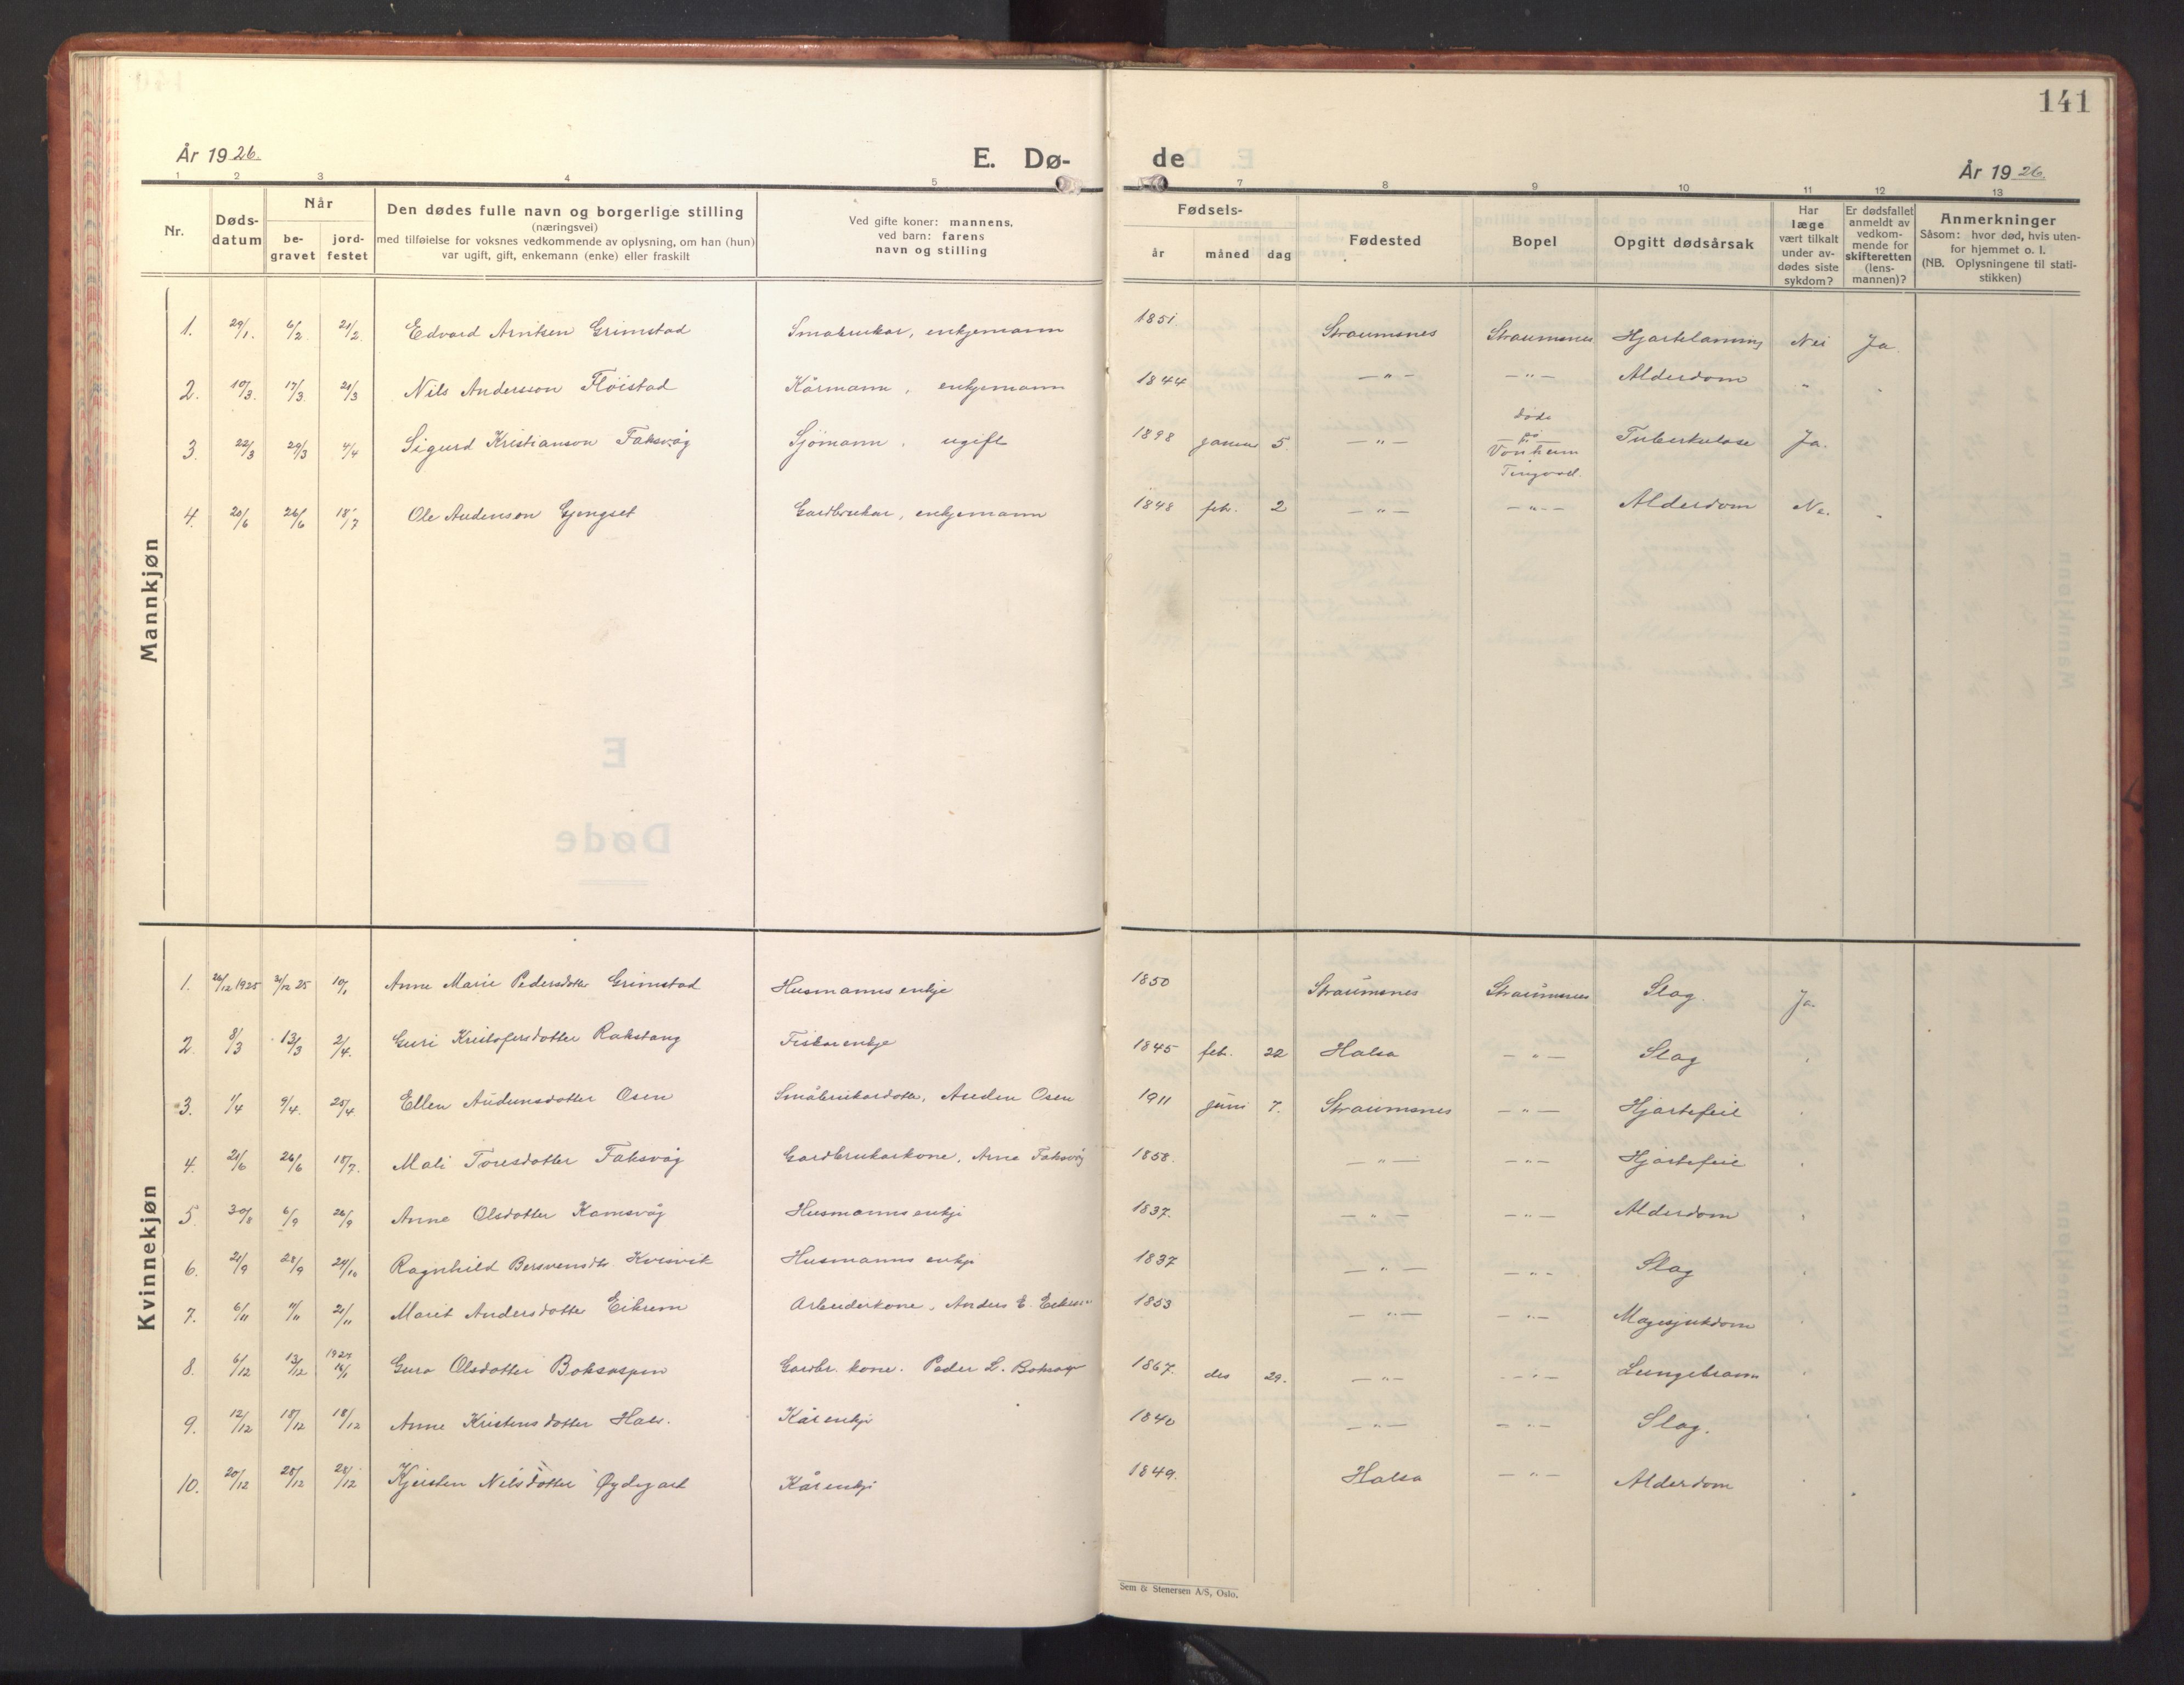 141
År 1926.
E. Dø-
de
År 1926
1 2 3 4 5 7 8 9 10 11 12 13
Nr.
Døds-
datum
Når
be-
gravet
jord-
festet
Den dødes fulle navn og borgerlige stilling
(næringsvei)
med tilføielse for voksnes vedkommende av oplysning, om han (hun)
var ugift, gift, enkemann (enke) eller fraskilt
Ved gifte koner: mannens,
ved barn: farens
navn og stilling
Fødsels-
år måned dag
Fødested
Bopel
Opgitt dødsårsak
Har
læge
vært tilkalt
under av-
dødes siste
sykdom?
Er dødsfallet
anmeldt av
vedkom-
mende for
skifteretten
(lens-
mannen)?
Anmerkninger
Såsom: hvor død, hvis uten-
for hjemmet o. l.
(NB. Oplysningene til stati-
stikken)
Mannkjøn
1. 29/1. 6/2. 21/2. Edvard Arntsen Grimstad Småbrukar, enkjemann 1851 Straumsnes Straumsnes Hjartelamming Nei Ja.
2. 10/3. 17/3. 21/3 Nils Andersson Flöistad Kårmann, enkjemann 1844 — " — — " — Alderdom " "
3. 22/3 29/3 4/4 Sigurd Kristianson Faksvåg Sjömann, ugift 1898 januar 5. — " — döde på Vonheim Tingvoll. Tuberkulose Ja.
4. 20/6 26/6 18/7 Ole Audenson Gjengset Gardbrukar, enkjemann 1848 feb. 2 — " — — " — Alderdom Ne. "
Kvinnekjøn
1. 26/12 1925 31/12 25 10/1 Anne Marie Pedersdotter Grimstad Husmanns enkje 1850 Straumsnes Straumsnes Slag. Ja.
2. 8/3 13/3 2/4. Guri Kristofersdotter Rakstang Fiskarenkje 1845 feb. 22 Halsa — " — Slag "
3. 1/4 9/4. 25/4 Ellen Audunsdotter Osen Småbrukardotter, Auden Osen 1911 juni 7. Straumsnes — " — Hjartefeil "
4. 21/6 26/6 18/7. Mali Toresdotter Faksvåg Gardbrukarkone, Arne Faksvåg 1858. — " — — " — Hjartefeil "
5. 30/8 6/9 26/9 Anne Olsdotter Kamsvåg Husmanns enkje 1837. — " — — " — Alderdom "
6. 21/9 28/9 24/10 Ragnhild Bersvensdtr Kvisvik Husmanns enkje 1837 — " — — " — Slag "
7. 6/11 11/11 21/11 Marit Andersdotter Eikrem Arbeiderkone, Anders E. Eikrem 1853 — " — — " — Magesjukdom "
8. 6/12 13/12 1927 16/1 Guro Olsdotter Boksaspen Gardbr. kone. Peder L. Boksasp 1867. des 29. — " — — " — Lungebrann "
9. 12/12 18/12 18/12 Anne Kristensdotter Hals. Kårenkje 1840 — " — — " — Slag.
10. 20/12 28/12 28/12 Kjersten Nilsdotter Øydegard Kårenkje 1849. Halsa — " — Alderdom "
Sem & Stenersen A/S, Oslo.